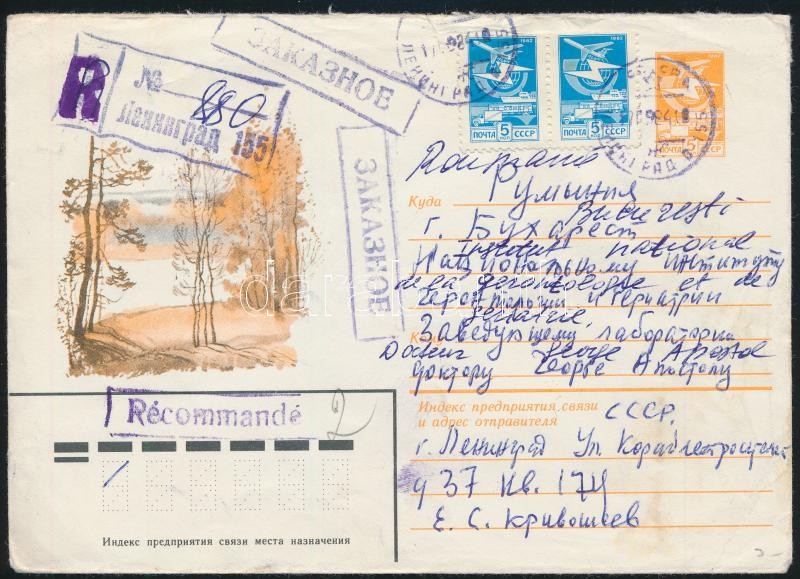 ЗАКАЗНОЕ
R
№ 880
Ленинград 155
ЗАКАЗНОЕ
ЛЕНИНГРАД
1982
1982
ПОЧТА 5 СССР
ПОЧТА 5 СССР
ПОЧТА 5 СССР
Румыния
Куда
Bucuresti
г. Бухарест
Institut national
Национальному Институту
de la gerontologie et de
геронтологии и гериатрии
geriatrie.
Заведующему лаборатории
George Apostol
доктору George Апостолу
Индекс предприятия связи
и адрес отправителя
СССР.
г. Ленинград Ул. Кораблестроителей
д 37 кв. 174
Е. С. Кривошеев
Récommandé
2
Индекс предприятия связи места назначения